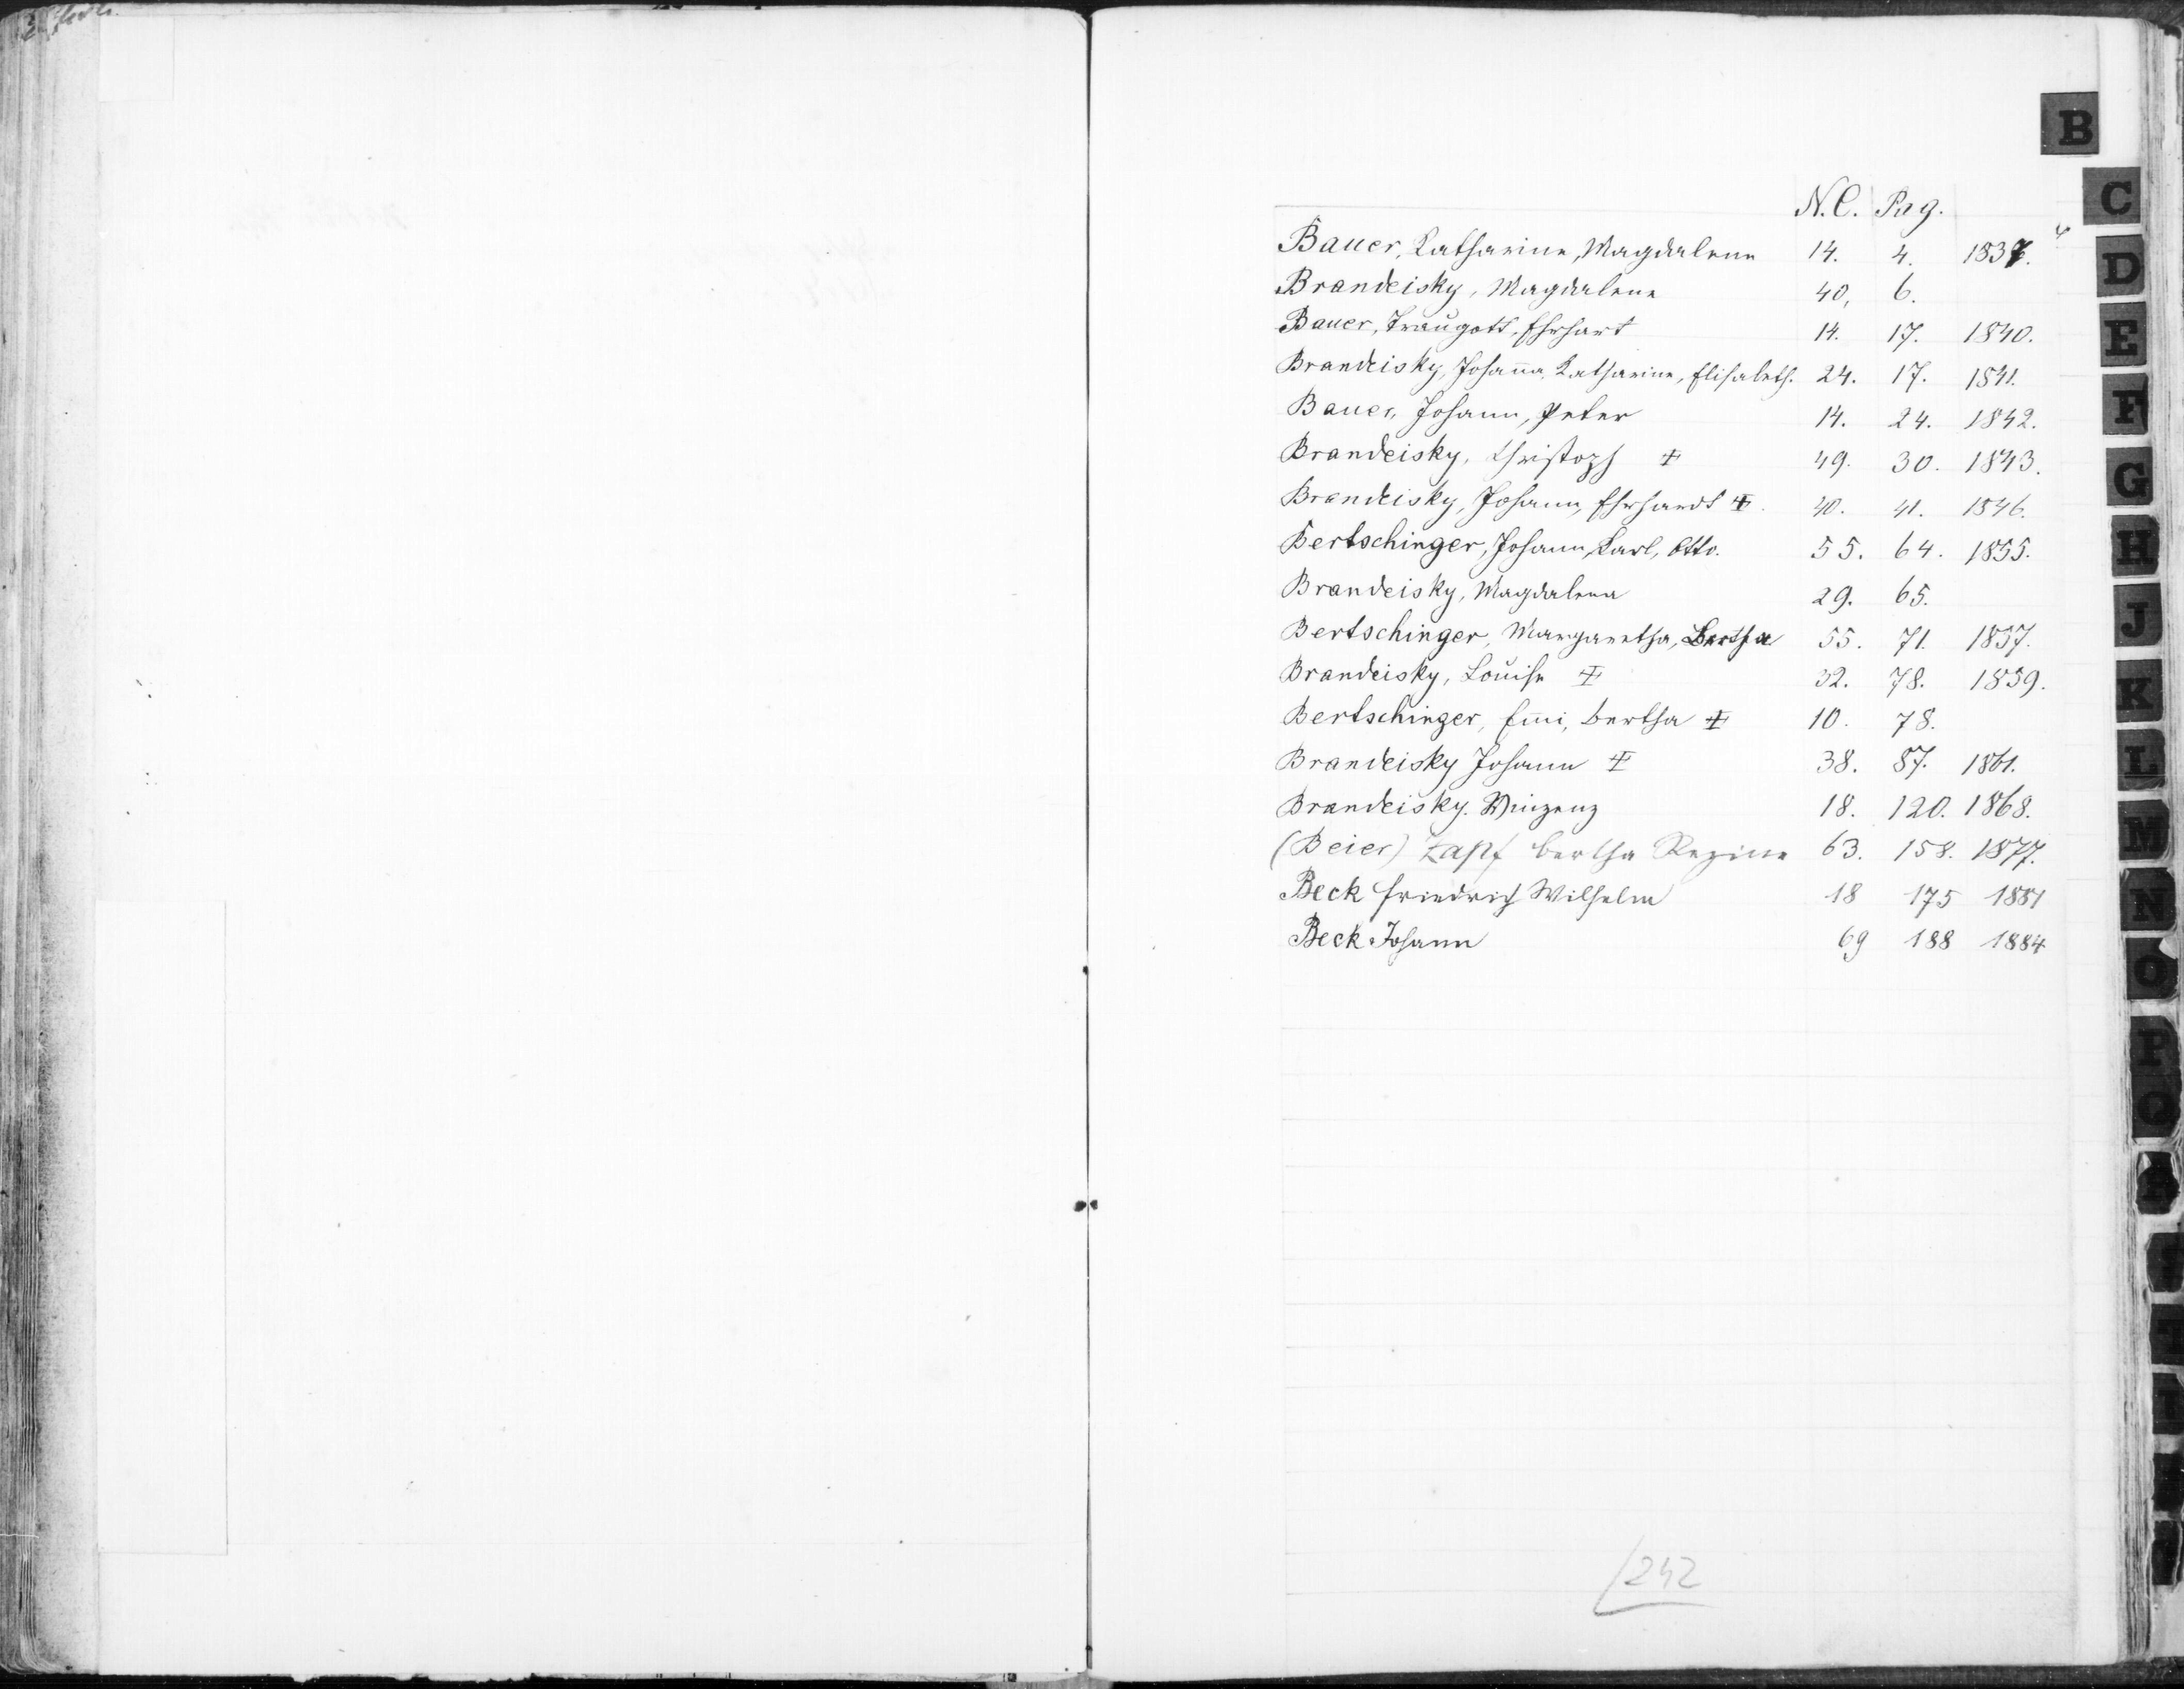 B
C
D
E
F
G
H
J
K
L
M
N
O
P
Q
N.C. Pag.
Bauer, Katharine, Magdalene 14. 4. 1837.
Brandeisky, Magdalena 40, 6.
Bauer, Traugott, Ehrhart 14. 17. 1840.
Brandeisky, Johan̄a, Katharine, Elisabeth. 24. 17. 1841.
Bauer, Johann, Peter 14. 24. 1842.
Brandeisky, Christoph ‡ 49. 30. 1843.
Brandeisky, Johann, Ehrhardt ‡. 40. 41. 1846.
Bertschinger, Johann, Karl, Otto. 55. 64. 1855.
Brandeisky, Magdalena 29. 65.
Bertschinger, Margaretha, Bertha 55. 71. 1857.
Brandeisky, Louise ‡ 32. 78. 1859.
Bertschinger, Em̄i, Bertha ‡ 10. 78.
Brandeisky Johann ‡ 38. 87. 1861.
Brandeisky. Vinzenz 18. 120. 1868.
(Beier) Zapf Bertha Regine 63. 158. 1877.
Beck Friedrich Wilhelm 18 175 1881
Beck Johann 69 188 1884
242